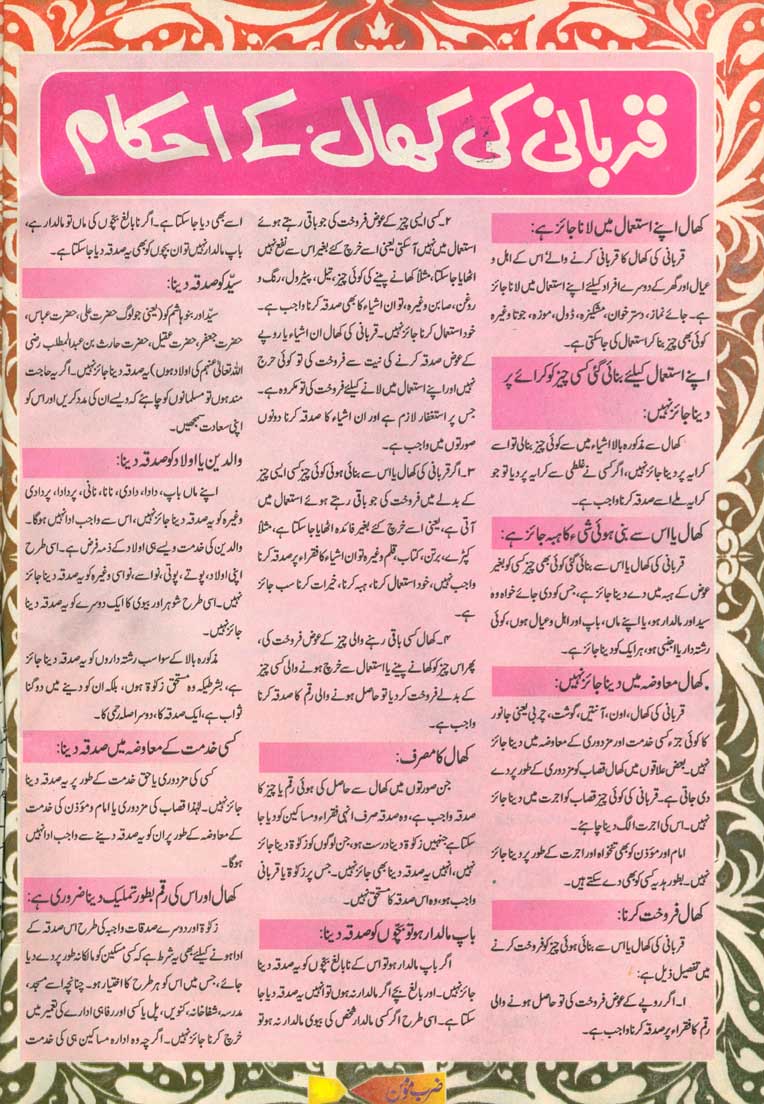 قربانی کی کھال کے احکام
کھال اپنے استعمال میں لانا جائز ہے:
قربانی کی کھال کا قربانی کرنے والے اس کے اہل و
عیال اور گھر کے دوسرے افراد کیلئے اپنے استعمال میں لانا جائز
ہے۔ جائے نماز، دسترخوان، مشکیزہ، ڈول، موزہ، جوتا وغیرہ
کوئی بھی چیز بنا کر استعمال کی جا سکتی ہے۔
اپنے استعمال کیلئے بنائی گئی کسی چیز کو کرائے پر
دینا جائز نہیں:
کھال سے مذکورہ بالا اشیاء میں سے کوئی چیز بنالی تو اسے
کرایہ پر دینا جائز نہیں، اگر کسی نے غلطی سے کرایہ پر دیا تو جو
کرایہ ملے اسے صدقہ کرنا واجب ہے۔
کھال یا اس سے بنی ہوئی شیٔ کا ہبہ جائز ہے:
قربانی کی کھال یا اس سے بنائی گئی کوئی بھی چیز کسی کو بغیر
عوض کے ہبہ میں دے دینا جائز ہے، جس کو دی جائے خواہ وہ
سید اور مالدار ہو، یا اپنے ماں، باپ اور اہل و عیال ہوں، کوئی
رشتہ دار یا اجنبی ہو، ہر ایک کو دینا جائز ہے۔
کھال معاوضہ میں دینا جائز نہیں:
قربانی کی کھال، اون، آنتیں، گوشت، چربی یعنی جانور
کا کوئی جزء کسی خدمت اور مزدوری کے معاوضہ میں دینا جائز
نہیں۔ بعض علاقوں میں کھال قصاب کو مزدوری کے طور پر دے
دی جاتی ہے۔ قربانی کی کوئی چیز قصاب کو اجرت میں دینا جائز
نہیں۔ اس کی اجرت الگ دینا چاہئے۔
امام اور مؤذن کو بھی تنخواہ اور اجرت کے طور پر دینا جائز
نہیں۔ بطور ہدیہ کسی کو بھی دے سکتے ہیں۔
کھال فروخت کرنا:
قربانی کی کھال یا اس سے بنائی ہوئی چیز کو فروخت کرنے
میں تفصیل ذیل ہے:
۱۔ اگر روپے کے عوض فروخت کی تو حاصل ہونے والی
رقم کا فقراء پر صدقہ کرنا واجب ہے۔
۲۔ کسی ایسی چیز کے عوض فروخت کی جو باقی رہتے ہوئے
استعمال میں نہیں آ سکتی یعنی اسے خرچ کئے بغیر اس سے نفع نہیں
اٹھایا جا سکتا، مثلاً کھانے پینے کی کوئی چیز، تیل، پیٹرول، رنگ و
روغن، صابن وغیرہ، تو ان اشیاء کا بھی صدقہ کرنا واجب ہے۔
خود استعمال کرنا جائز نہیں۔ قربانی کی کھال ان اشیاء یا روپے
کے عوض صدقہ کرنے کی نیت سے فروخت کی تو کوئی حرج
نہیں اور اپنے استعمال میں لانے کیلئے فروخت کی تو مکروہ ہے۔
جس پر استغفار لازم ہے اور ان اشیاء کا صدقہ کرنا دونوں
صورتوں میں واجب ہے۔
۳۔ اگر قربانی کی کھال یا اس سے بنائی ہوئی کوئی چیز کسی ایسی چیز
کے بدلے میں فروخت کی جو باقی رہتے ہوئے استعمال میں
آتی ہے، یعنی اسے خرچ کئے بغیر فائدہ اٹھایا جا سکتا ہے، مثلاً
کپڑے، برتن، کتاب، قلم وغیرہ تو ان اشیاء کا فقراء پر صدقہ کرنا
واجب نہیں، خود استعمال کرنا، ہبہ کرنا، خیرات کرنا سب جائز
ہے۔
۴۔ کھال کسی باقی رہنے والی چیز کے عوض فروخت کی،
پھر اس چیز کو کھانے پینے یا استعمال سے خرچ ہونے والی کسی چیز
کے بدلے فروخت کر دیا تو حاصل ہونے والی رقم کا صدقہ کرنا
واجب ہے۔
کھال کا مصرف:
جن صورتوں میں کھال سے حاصل کی ہوئی رقم یا چیز کا
صدقہ واجب ہے، وہ صدقہ صرف انہی فقراء و مساکین کو دیا جا
سکتا ہے جنہیں زکوٰۃ دینا درست ہو، جن لوگوں کو زکوٰۃ دینا جائز
نہیں، انہیں یہ صدقہ دینا بھی جائز نہیں۔ جس پر زکوٰۃ یا قربانی
واجب ہو، وہ اس صدقہ کا مستحق نہیں۔
باپ مالدار ہو تو بچوں کو صدقہ دینا:
اگر باپ مالدار ہو تو اس کے نابالغ بچوں کو یہ صدقہ دینا
جائز نہیں۔ اور بالغ بچے اگر مالدار نہ ہوں تو انہیں یہ صدقہ دیا جا
سکتا ہے۔ اسی طرح اگر کسی مالدار شخص کی بیوی مالدار نہ ہو تو
اسے بھی دیا جا سکتا ہے۔ اگر نابالغ بچوں کی ماں تو مالدار ہے،
باپ مالدار نہیں تو ان بچوں کو بھی یہ صدقہ دیا جا سکتا ہے۔
سیّد کو صدقہ دینا:
سیّد اور بنو ہاشم کو (یعنی جو لوگ حضرت علی، حضرت عباس،
حضرت جعفر، حضرت عقیل، حضرت حارث بن عبدالمطلب رضی
اللہ تعالیٰ عنہم کی اولاد ہوں) یہ صدقہ دینا جائز نہیں۔ اگر یہ حاجت
مند ہوں تو مسلمانوں کو چاہئے کہ ویسے ان کی مدد کریں اور اس کو
اپنی سعادت سمجھیں۔
والدین یا اولاد کو صدقہ دینا:
اپنے ماں باپ، دادا، دادی، نانا، نانی، پردادا، پردادی
وغیرہ کو یہ صدقہ دینا جائز نہیں، اس سے واجب ادا نہیں ہوگا۔
والدین کی خدمت ویسے ہی اولاد کے ذمہ فرض ہے۔ اسی طرح
اپنی اولاد، پوتے، پوتی، نواسے، نواسی وغیرہ کو یہ صدقہ دینا جائز
نہیں۔ اسی طرح شوہر اور بیوی کا ایک دوسرے کو یہ صدقہ دینا
جائز نہیں۔
مذکورہ بالا کے سوا سب رشتہ داروں کو یہ صدقہ دینا جائز
ہے، بشرطیکہ وہ مستحق زکوٰۃ ہوں، بلکہ ان کو دینے میں دو گنا
ثواب ہے، ایک صدقہ کا، دوسرا صلہ رحمی کا۔
کسی خدمت کے معاوضہ میں صدقہ دینا:
کسی کی مزدوری یا حق خدمت کے طور پر یہ صدقہ دینا
جائز نہیں۔ لہٰذا قصاب کی مزدوری یا امام و مؤذن کی خدمت
کے معاوضہ کے طور پر ان کو یہ صدقہ دینے سے واجب ادا نہیں
ہوگا۔
کھال اور اس کی رقم بطور تملیک دینا ضروری ہے:
زکوٰۃ اور دوسرے صدقات واجبہ کی طرح اس صدقہ کے
ادا ہونے کیلئے بھی یہ شرط ہے کہ کسی مسکین کو مالکانہ طور پر دے دیا
جائے، جس میں اس کو ہر طرح کا اختیار ہو۔ چنانچہ اسے مسجد،
مدرسہ، شفاخانہ، کنویں، پل یا کسی اور رفاہی ادارے کی تعمیر میں
خرچ کرنا جائز نہیں۔ اگرچہ وہ ادارہ مساکین ہی کی خدمت
ضرب مؤمن